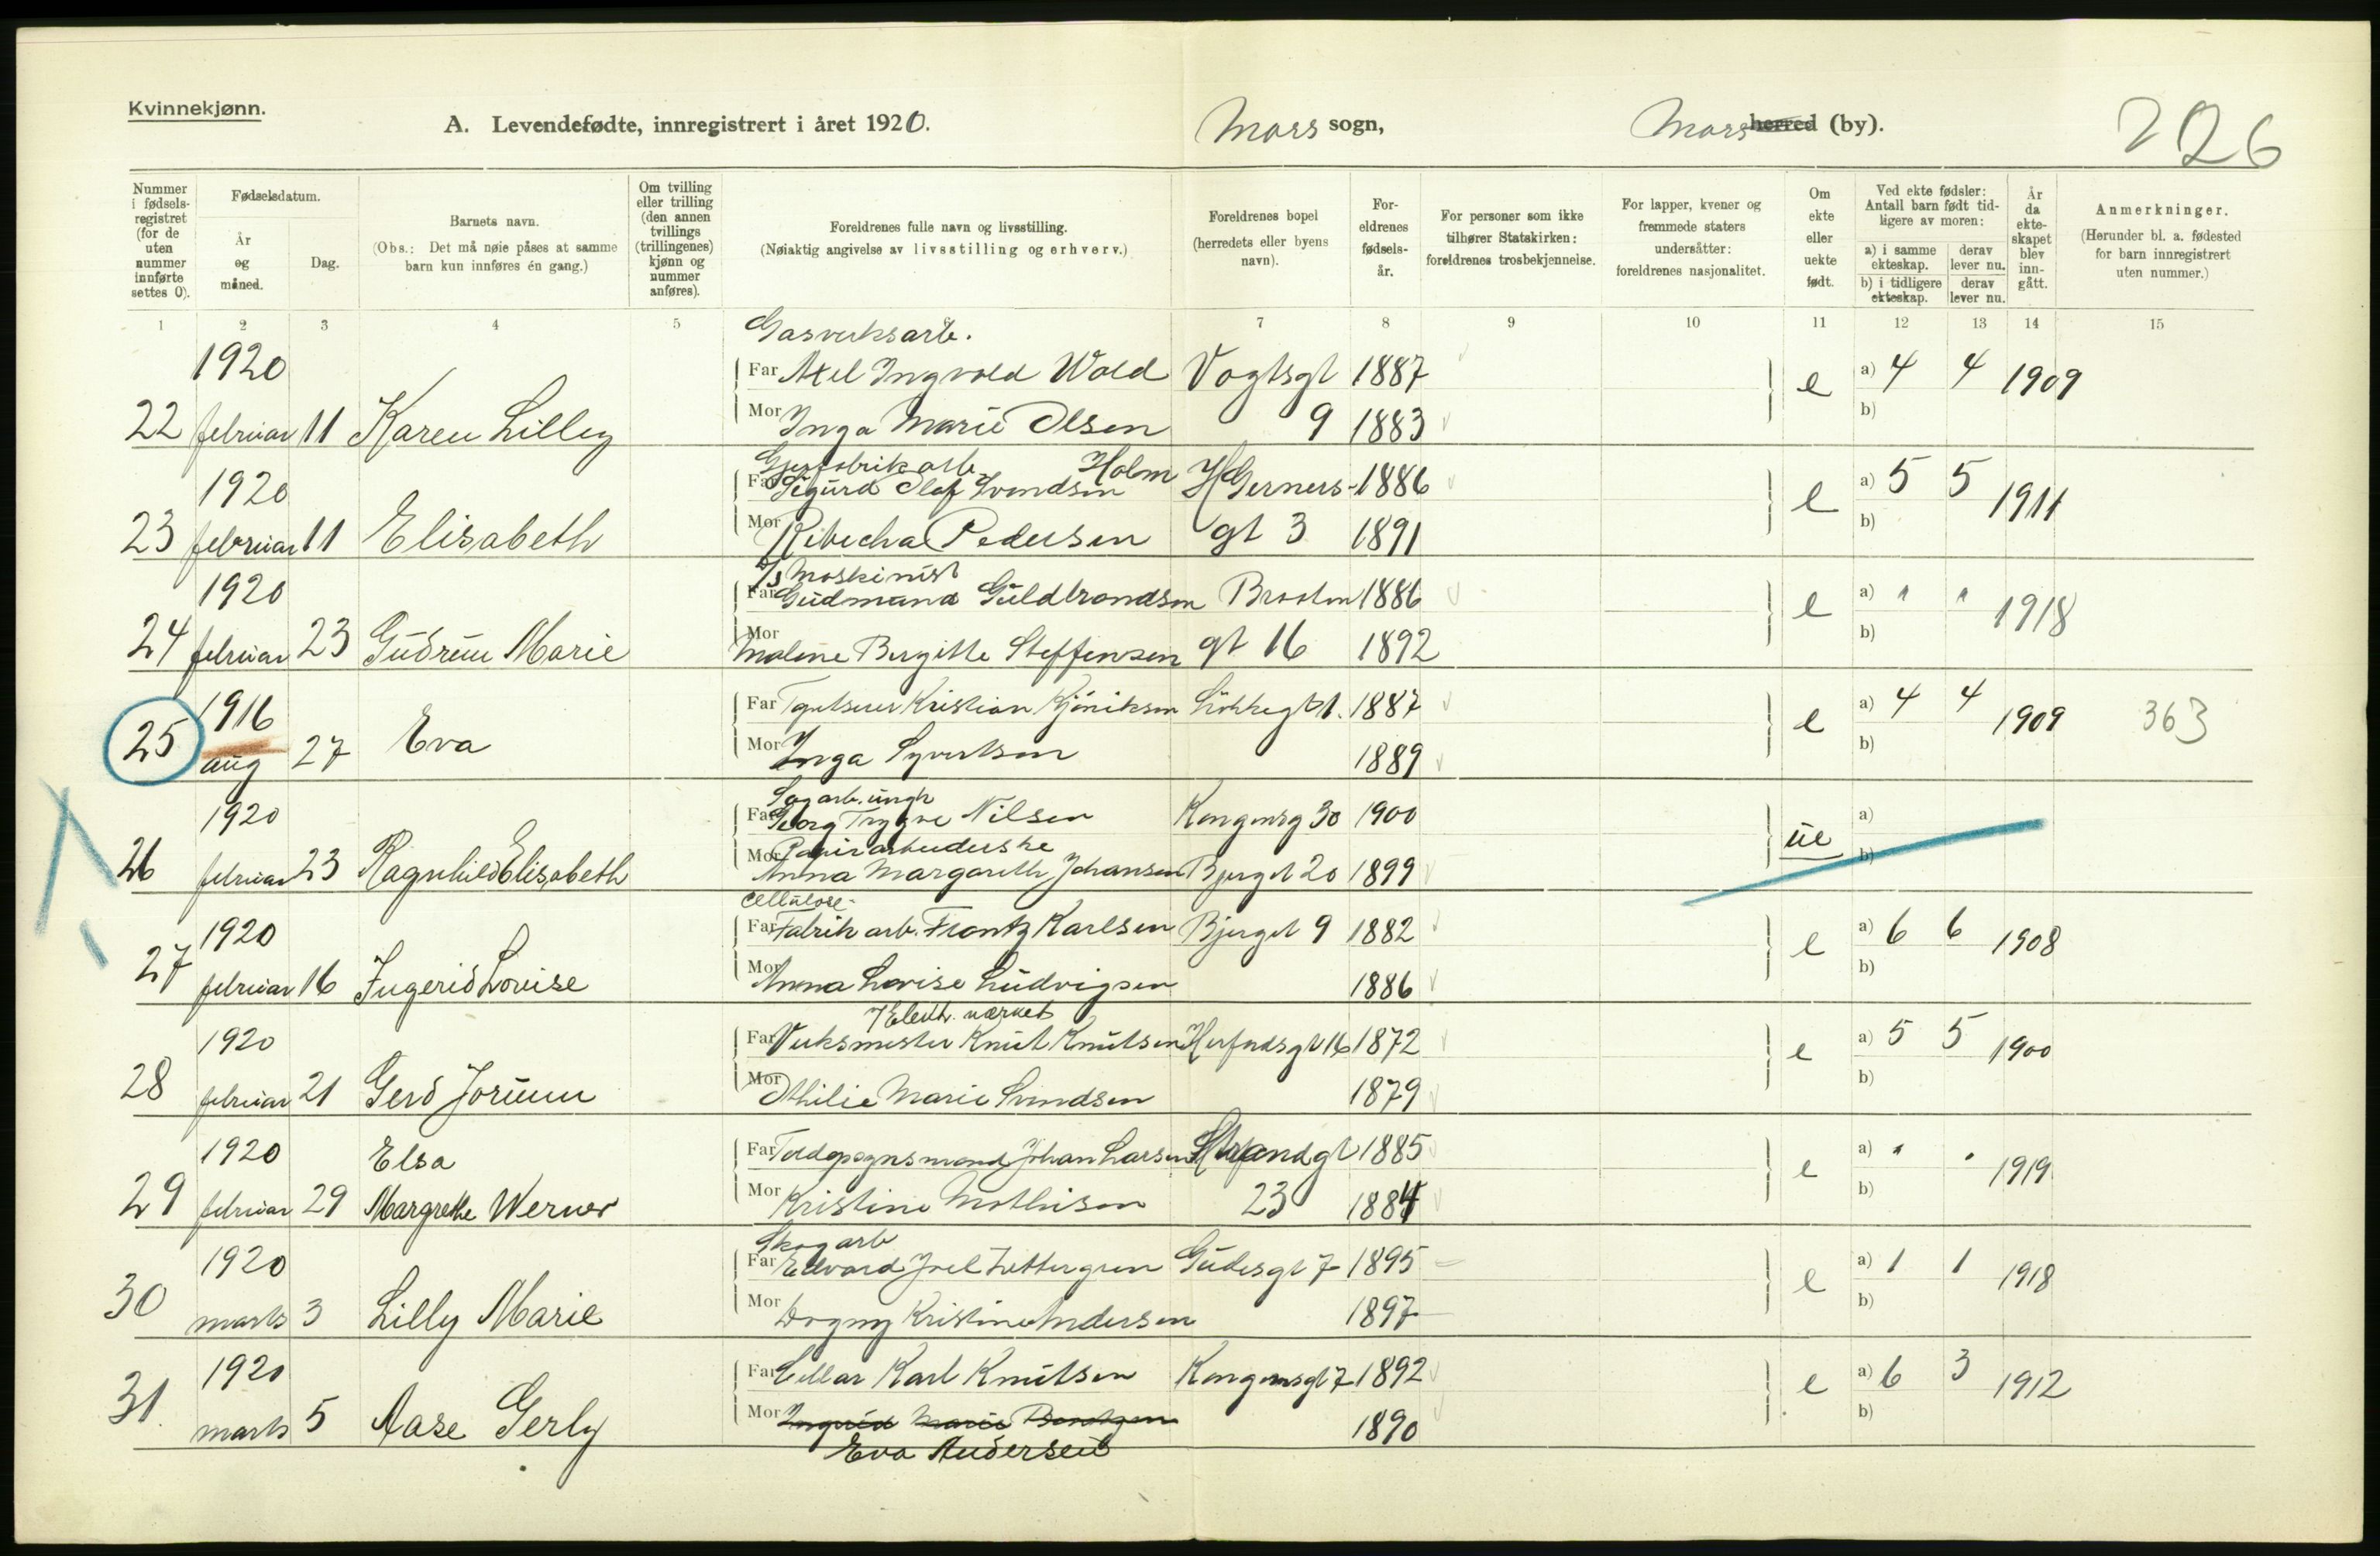 Kvinnekjønn.
A. Levendefødte, innregistrert i året 1920. Moss sogn, Moss herred (by). 226
Nummer i fødselsregistret (for de uten nummer innførte settes 0).
Fødselsdatum.
År og måned.
Dag.
Barnets navn.
(Obs.: Det må nøie påses at samme barn kun innføres én gang.)
Om tvilling eller trilling (den annen tvillings (trillingenes) kjønn og nummer anføres).
Foreldrenes fulle navn og livsstilling.
(Nøiaktig angivelse av livsstilling og erhverv.)
Foreldrenes bopel (herredets eller byens navn).
Foreldrenes fødselsår.
For personer som ikke tilhører Statskirken: foreldrenes trosbekjennelse.
For lapper, kvener og fremmede staters undersåtter: foreldrenes nasjonalitet.
Om ekte eller uekte født.
Ved ekte fødsler: Antall barn født tidligere av moren:
a) i samme ekteskap. derav lever nu.
b) i tidligere ekteskap. derav lever nu.
År da ekteskapet blev inngått.
Anmerkninger.
(Herunder bl. a. fødested for barn innregistrert uten nummer.)
1 2 3 4 5 7 8 9 10 11 12 13 14 15
Gasverksarb.
1920 Far Axel Ingvold Wold Vogtsgt 1887 e a) 4 4 1909
22 februar 11 Karen Lilley Mor Inga Marie Olsen 9 1883 b)
Holm
1920 Far Sigurd Olaf Svendsen H Gerners- 1886 e a) 5 5 1911
23 februar 11 Elisabeth Mor Rebecha Pedersen gt 3 1891 b)
Maskinist
1920 Far Gudmund Guldbrandsen 1886 e a) " " 1918
24 februar 23 Gudrun Marie Mor Malene Birgitte Steffensen gt 16 1892 b)
1916 Far Kristian 1887 e a) 4 4 1909 363
25 aug 27 Eva Mor Inga Syvertsen 1889 b)
Sagarb. ungk
1920 Far Georg Trygve Nilsen Kongensg 30 1900 ue a)
Papirarbeiderske
26 februar 23 Ragnhild Elisabeth Mor Anna Margareth Johansen Bjerget 20 1899 b)
Cellulose-
1920 Far Fabrik arb. Frantz Karlsen Bjerget 9 1882 e a) 6 6 1908
27 februar 16 Ingerid Lovise Mor Anna Lovise Ludvigsen 1886 b)
v Elektr. værket
1920 Far Verksmester Knut Knutsen 1872 e a) 5 5 1900
28 februar 21 Gerd Jorunn Mor Othilie Marie Svendsen 1879 b)
1920 Elsa Far Toldopsynsmand Johan Larsen Strandgt 1885 e a) " " 1919
29 februar 29 Margrethe Werner Mor Kristine Mathisen 23 1884 b)
Skogarb
1920 Far Edvard Joel Zettergren Gudesgt 7 1895 e a) 1 1 1918
30 marts 3 Lilly Marie Mor Dagny Kristine Andersen 1897 b)
1920 Far Karl Knutsen Kongensgt 7 1892 e a) 6 3 1912
31 marts 5 Aase Gerly Mor Ingrid Marie 1890 b)
Eva Andersen